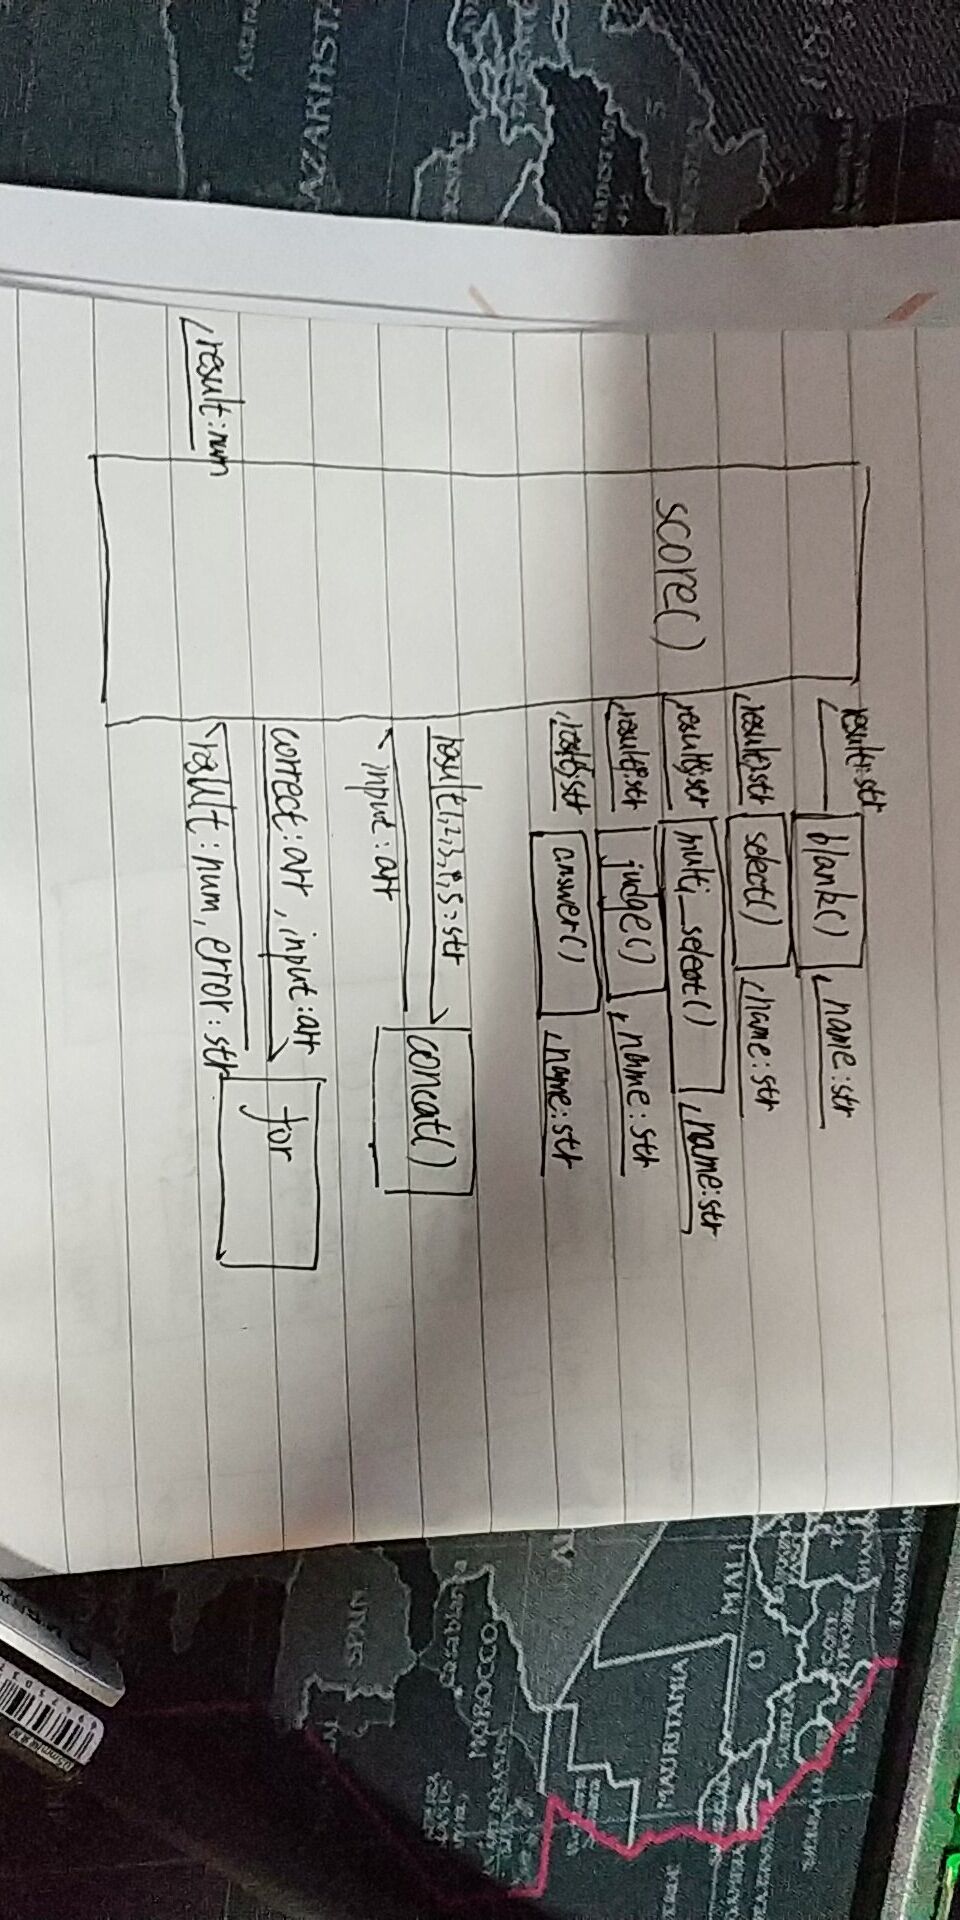 result1:str blank() name:str
result2:str select() name:str
score() result3:str multi_select() name:str
result4:str judge() name:str
result5:str answer() name:str
result1,2,3,4,5:str concat()
input:arr
correct:arr,input:arr for
result:num result:num,error:str
MALI
MAURITANIA
MOROCCO
Casablanca
SPAIN
AZAKHSTA
Astana